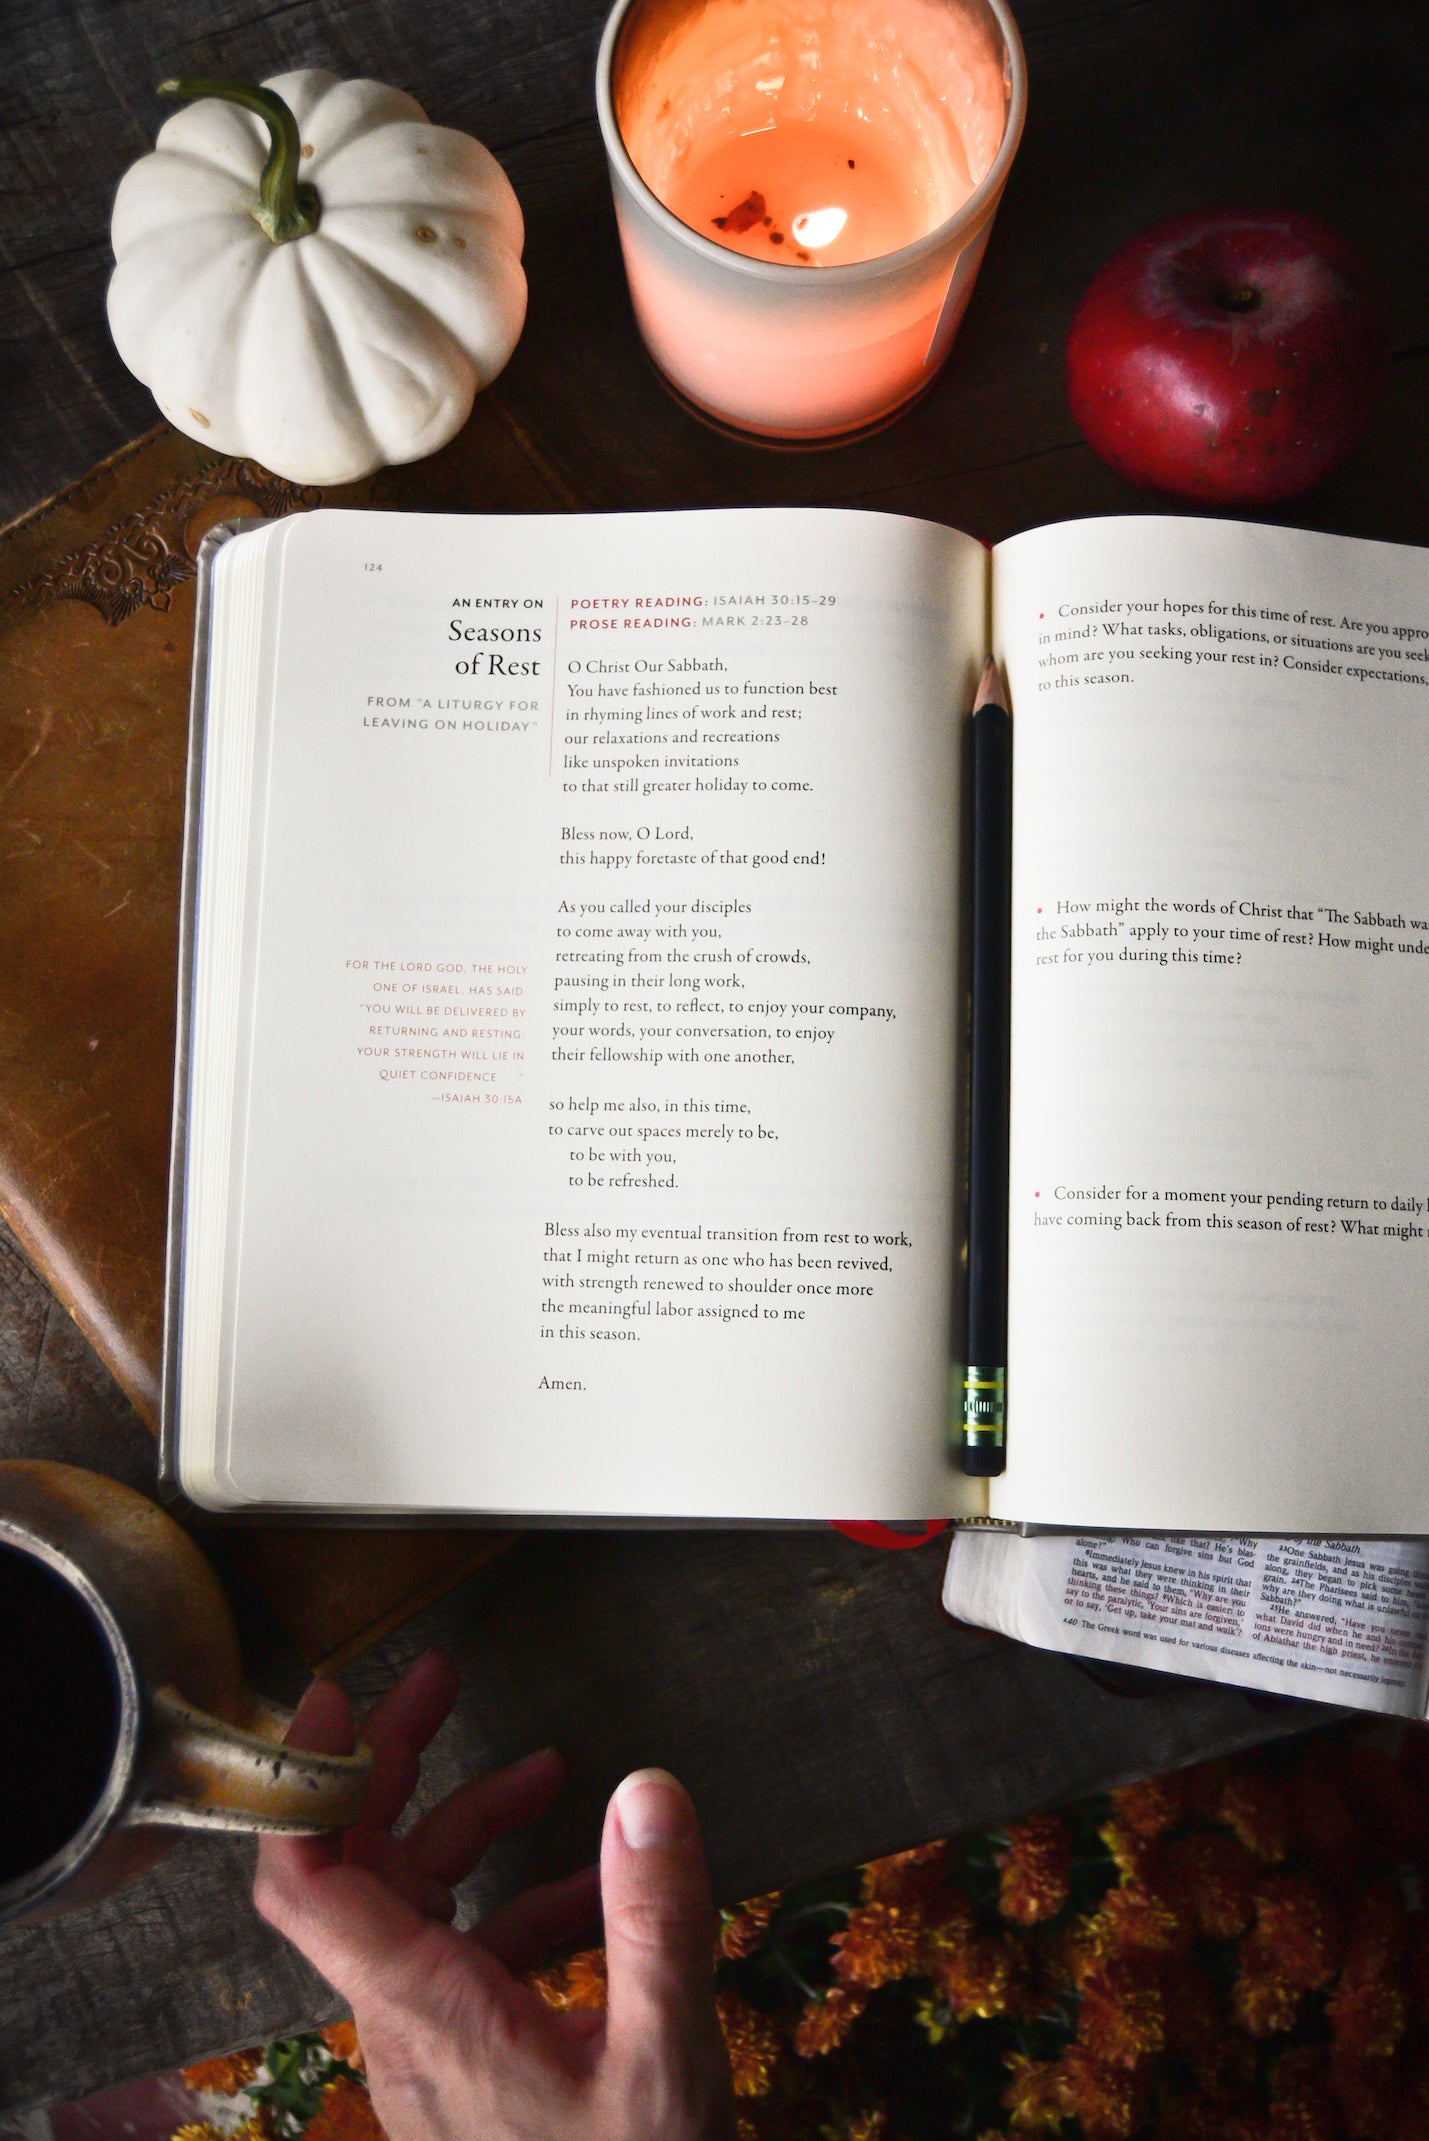 124
AN ENTRY ON
Seasons
of Rest
FROM "A LITURGY FOR
LEAVING ON HOLIDAY"
POETRY READING: ISAIAH 30:15–29
PROSE READING: MARK 2:23–28
O Christ Our Sabbath,
You have fashioned us to function best
in rhyming lines of work and rest;
our relaxations and recreations
like unspoken invitations
to that still greater holiday to come.
Bless now, O Lord,
this happy foretaste of that good end!
As you called your disciples
to come away with you,
retreating from the crush of crowds,
pausing in their long work,
simply to rest, to reflect, to enjoy your company,
your words, your conversation, to enjoy
their fellowship with one another,
FOR THE LORD GOD, THE HOLY
ONE OF ISRAEL, HAS SAID:
"YOU WILL BE DELIVERED BY
RETURNING AND RESTING;
YOUR STRENGTH WILL LIE IN
QUIET CONFIDENCE . . ."
—ISAIAH 30:15A
so help me also, in this time,
to carve out spaces merely to be,
to be with you,
to be refreshed.
Bless also my eventual transition from rest to work,
that I might return as one who has been revived,
with strength renewed to shoulder once more
the meaningful labor assigned to me
in this season.
Amen.
• Consider your hopes for this time of rest. Are you appro
in mind? What tasks, obligations, or situations are you seek
whom are you seeking your rest in? Consider expectations,
to this season.
• How might the words of Christ that “The Sabbath wa
the Sabbath” apply to your time of rest? How might unde
rest for you during this time?
• Consider for a moment your pending return to daily
have coming back from this season of rest? What might
like that? He's blas-
Who can forgive sins but God
alone?"
8Immediately Jesus knew in his spirit that
this was what they were thinking in their
hearts, and he said to them, "Why are you
thinking these things? 9Which is easier: to
say to the paralytic, 'Your sins are forgiven,'
or to say, 'Get up, take your mat and walk'?
of the Sabbath
23One Sabbath Jesus was going
the grainfields, and as his disciples
along, they began to pick some
grain. 24The Pharisees said to him,
why are they doing what is unlawful
Sabbath?"
25He answered, "Have you never
what David did when he and his
ions were hungry and in need? 26In the
of Abiathar the high priest, he entered
a40 The Greek word was used for various diseases affecting the skin—not necessarily leprosy.